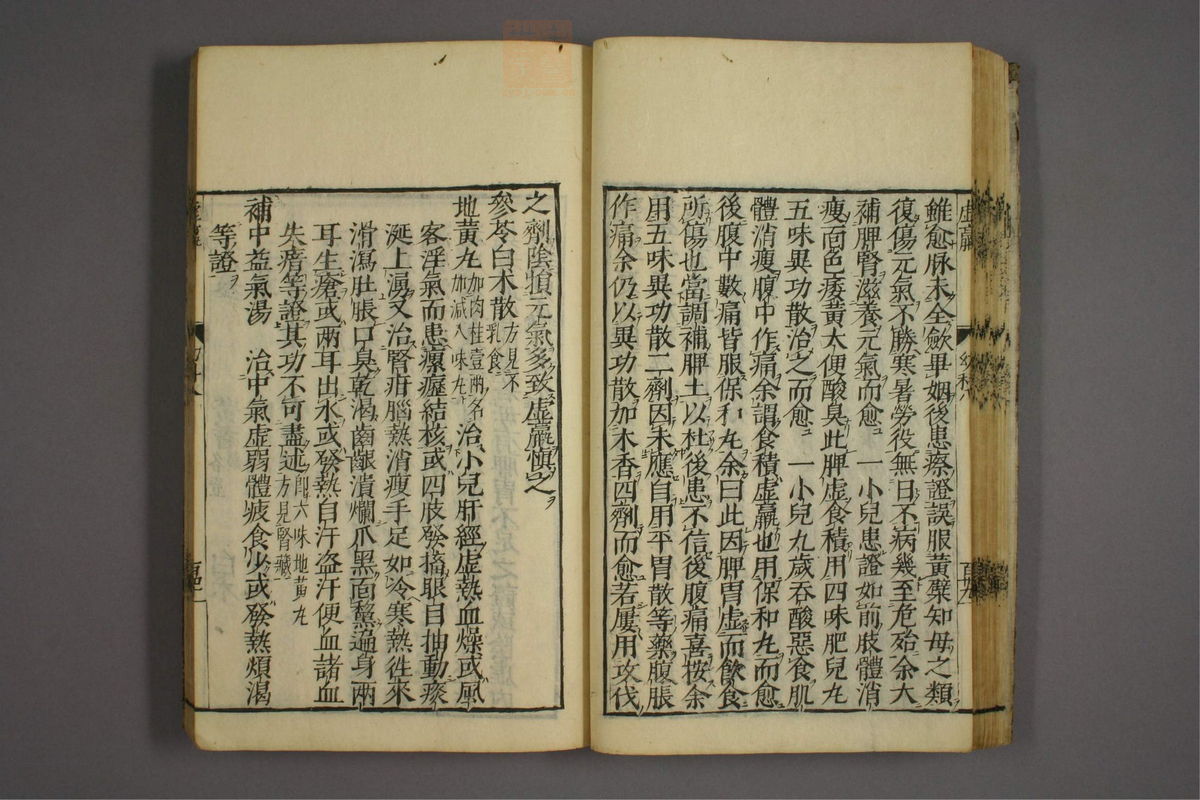 雖愈脉未全斂畢姻後患瘵證誤服黃蘗知母之類
復傷元氣不勝寒暑勞役無日不病幾至危殆余大
補脾腎滋養元氣而愈　一小兒患證如前肢體消
瘦面色痿黃大便酸臭此脾虛食積用四味肥兒丸
五味異功散治之而愈　一小兒九歲吞酸惡食肌
體消瘦腹中作痛余謂食積虛羸也用保和丸而愈
後腹中數痛皆服保和丸余曰此因脾胃虛而飲食
所傷也當調補脾土以杜後患不信後腹痛喜按余
用五味異功散二劑因未應自用平胃散等藥腹脹
作痛余仍以異功散加木香四劑而愈若屢用攻伐
之劑陰損元氣多致虛羸愼之
參苓白术散方見不乳食
地黃丸加肉桂壹兩名加減八味丸　治小兒肝經虛熱血燥或風
客淫氣而患瘰癧結核或四肢發搐眼目抽動痰
涎上湧又治腎疳腦熱消瘦手足如冷寒熱徃來
滑瀉肚脹口臭乾渴齒齦潰爛爪黑面黧遍身兩
耳生瘡或兩耳出水或發熱自汗盜汗便血諸血
失瘖等證其功不可盡述卽六味地黃丸方見腎臟
補中益氣湯　治中氣虛弱體疲食少或發熱煩渴
等證